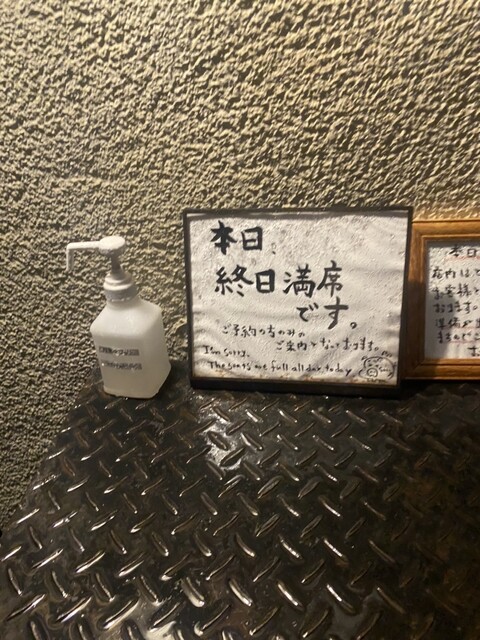 本日、
終日満席
です。
ご予約の方のみの
ご案内となっております。
I'm Sorry.
The seats are full all day today
本日
店内は
お客様
おります。
準備が